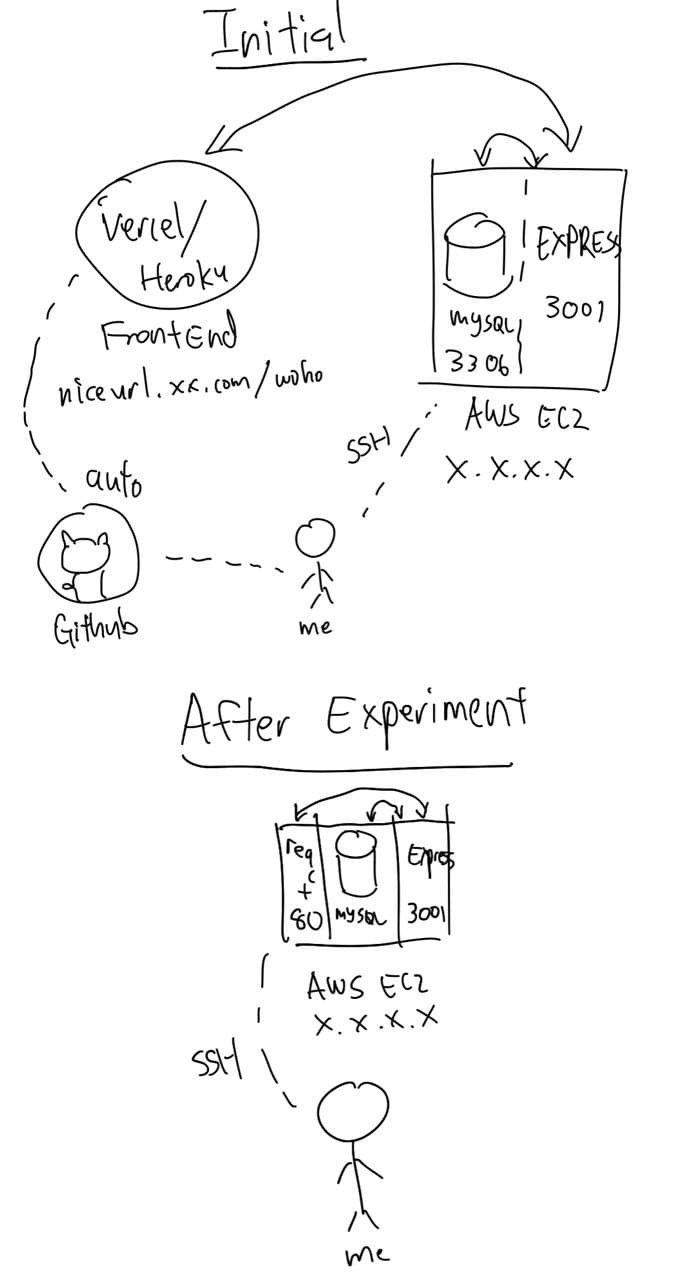 Initial
Vercel/
Heroku
FrontEnd
niceurl.xx.com/woho
EXPRESS
3001
mysql
3306
AWS EC2
X.X.X.X
SSH
auto
Github
me
After Experiment
reac
t
80
MYSQL
Expres
3001
AWS EC2
X.X.X.X
SSH
me